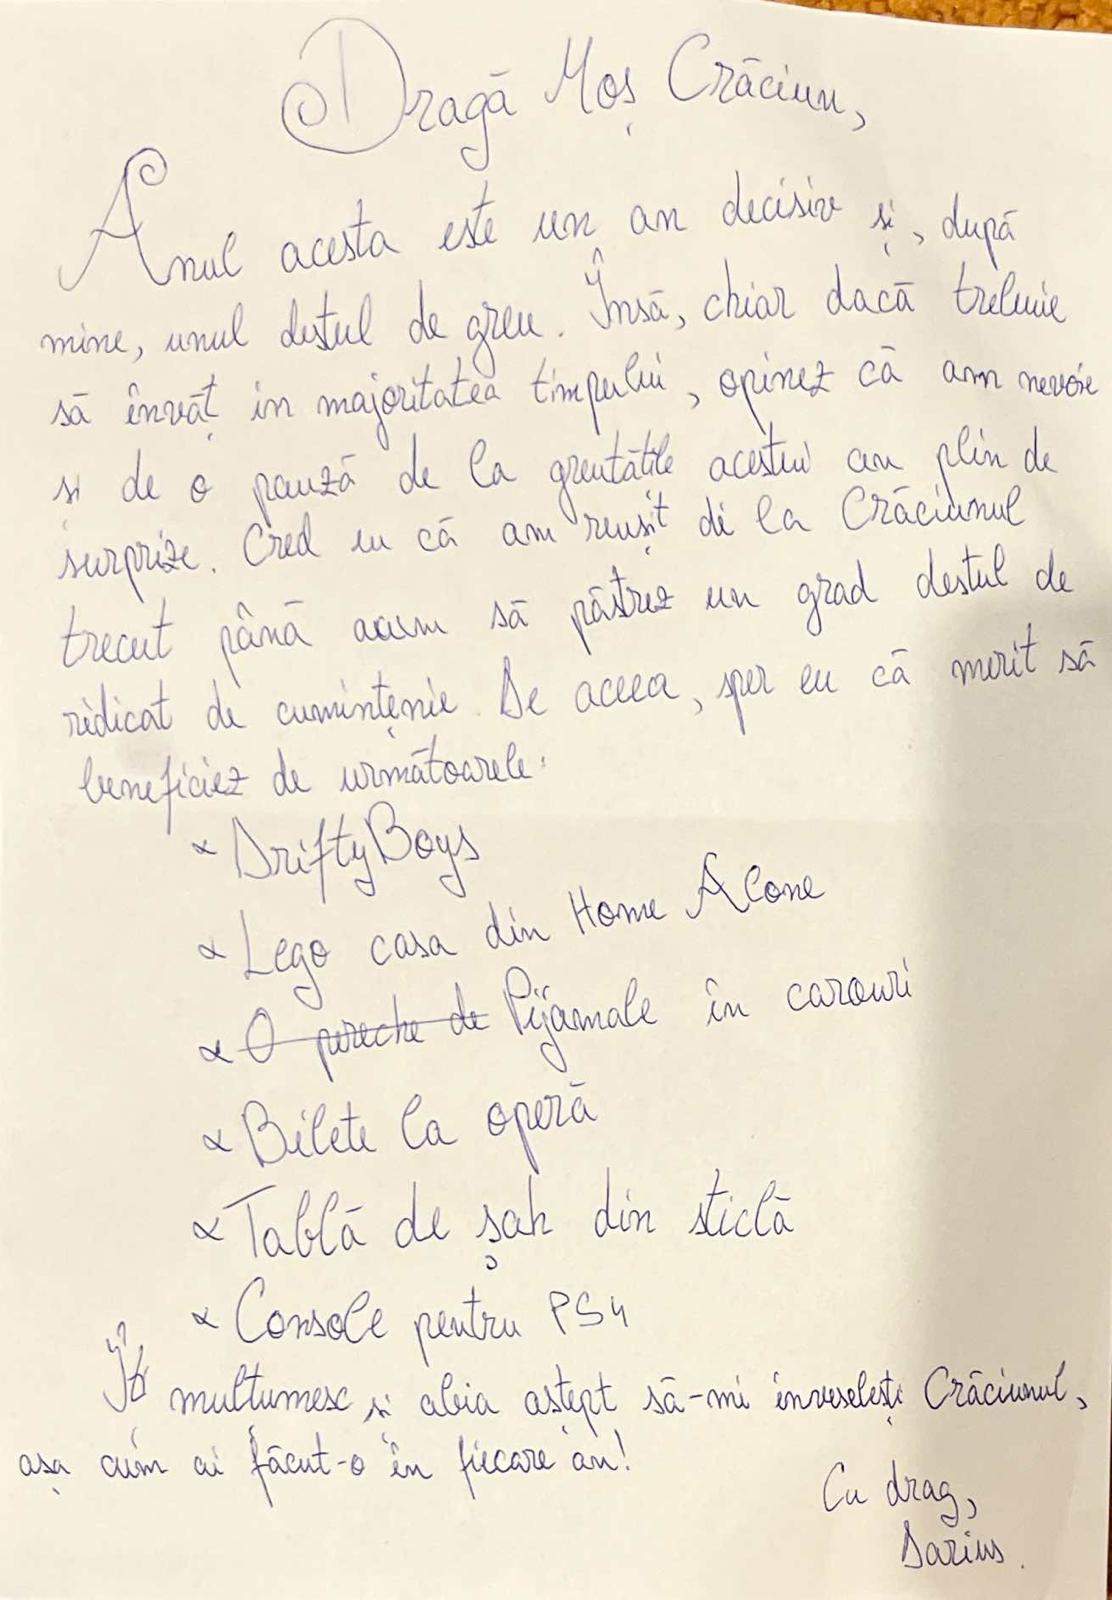 Dragă Moș Crăciun,
Anul acesta este un an decisiv și, după
mine, unul destul de greu. Însă, chiar dacă trebuie
să învăț in majoritatea timpului, opinez că am nevoie
și de o pauză de la greutățile acestui an plin de
surprize. Cred eu că am reușit de la Crăciunul
trecut până acum să păstrez un grad destul de
ridicat de cumințenie. De aceea, sper eu că merit să
beneficiez de următoarele:
× DriftyBoys
× Lego casa din Home Alone
× O pereche de Pijamale în carouri
× Bilete la operă
× Tablă de șah din sticlă
× Console pentru PS4
Îți mulțumesc și abia aștept să-mi înveselești Crăciunul,
așa cum ai făcut-o în fiecare an!
Cu drag,
Darius.